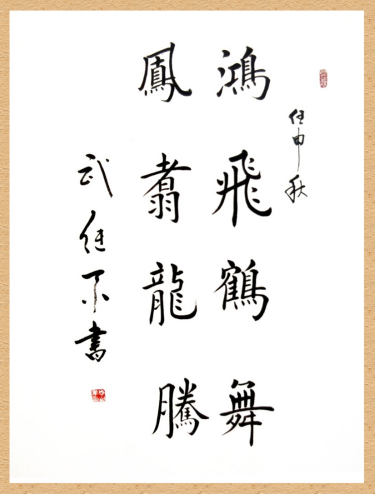 壬申秋
鴻飛鶴舞
鳳翥龍騰
武任不書